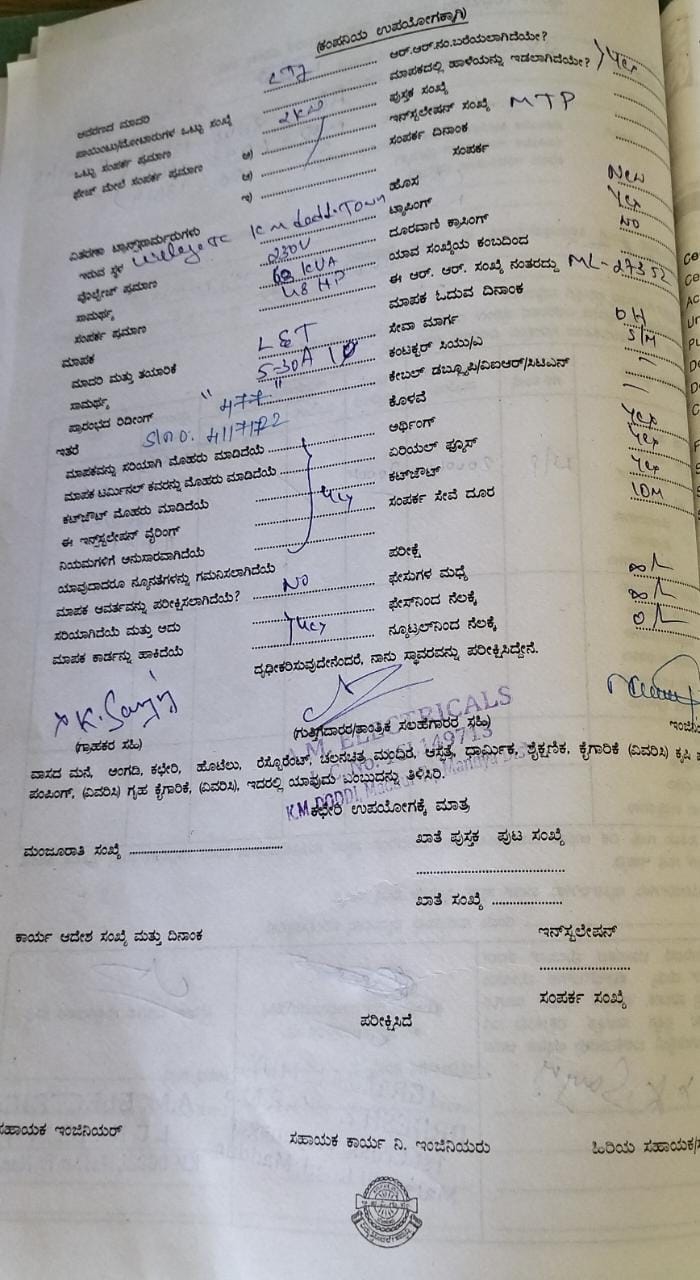 (ಕಂಪನಿಯ ಉಪಯೋಗಕ್ಕಾಗಿ)
ಆವರಣದ ಮಾದರಿ LT7 ಆರ್.ಆರ್.ನಂ.ಬರೆಯಲಾಗಿದೆಯೇ?
ಪಾಯಿಂಟು/ಮೋಟಾರುಗಳ ಒಟ್ಟು ಸಂಖ್ಯೆ ಮಾಪಕದಲ್ಲಿ ಹಾಳೆಯನ್ನು ಇಡಲಾಗಿದೆಯೇ? Yes
ಒಟ್ಟು ಸಂಪರ್ಕ ಪ್ರಮಾಣ 2KW ಪುಸ್ತಕ ಸಂಖ್ಯೆ
ಫೇಜ್ ಮೇಲೆ ಸಂಪರ್ಕ ಪ್ರಮಾಣ ಅ) ಇನ್ಸ್ಟಲೇಷನ್ ಸಂಖ್ಯೆ MTP
ಆ) ಸಂಪರ್ಕ ದಿನಾಂಕ
ಇ) ಸಂಪರ್ಕ
ವಿತರಣಾ ಟ್ರಾನ್ಸ್‌ಫಾರ್ಮರುಗಳು ಹೊಸ New
ಇರುವ ಸ್ಥಳ K M doddi Town ಟ್ಯಾಪಿಂಗ್ Yes
ವೋಲ್ಟೇಜ್ ಪ್ರಮಾಣ 230V ದೂರವಾಣಿ ಕ್ರಾಸಿಂಗ್ NO
ಸಾಮರ್ಥ್ಯ KVA ಯಾವ ಸಂಖ್ಯೆಯ ಕಂಬದಿಂದ
ಸಂಪರ್ಕ ಪ್ರಮಾಣ 48 HP ಈ ಆರ್. ಆರ್. ಸಂಖ್ಯೆ ನಂತರದ್ದು ML-27352
ಮಾಪಕ ಮಾಪಕ ಓದುವ ದಿನಾಂಕ
ಮಾದರಿ ಮತ್ತು ತಯಾರಿಕೆ L&T ಸೇವಾ ಮಾರ್ಗ OH
ಸಾಮರ್ಥ್ಯ 5-30A 1Ø ಕಂಟಕ್ಟರ್ ಸಿಯು/ಎ S/M
ಪ್ರಾರಂಭದ ರಿಡೀಂಗ್ " 477 " ಕೇಬಲ್ ಡಬ್ಲ್ಯೂಪಿ/ವಿಐಆರ್/ಸಿಟಿಎಸ್ –
ಇತರೆ Sl no. 4117172 ಕೊಳವೆ –
ಮಾಪಕವನ್ನು ಸರಿಯಾಗಿ ಮೊಹರು ಮಾಡಿದೆಯೆ ಅರ್ಥಿಂಗ್ Yes
ಮಾಪಕ ಟರ್ಮಿನಲ್ ಕವರನ್ನು ಮೊಹರು ಮಾಡಿದೆಯೆ ಏರಿಯಲ್ ಫ್ಯೂಸ್ Yes
ಕಟ್‌ಔಟ್ ಮೊಹರು ಮಾಡಿದೆಯೆ ಕಟ್‌ಔಟ್ Yes
ಈ ಇನ್ಸ್ಟಲೇಷನ್ ವೈರಿಂಗ್ Yes ಸಂಪರ್ಕ ಸೇವೆ ದೂರ 10M
ನಿಯಮಗಳಿಗೆ ಅನುಸಾರವಾಗಿದೆಯೆ
ಯಾವುದಾದರೂ ನ್ಯೂನತೆಗಳನ್ನು ಗಮನಿಸಲಾಗಿದೆಯೆ ಪರೀಕ್ಷೆ
ಮಾಪಕ ಆವರ್ತವನ್ನು ಪರೀಕ್ಷಿಸಲಾಗಿದೆಯೆ? NO ಫೇಸುಗಳ ಮಧ್ಯೆ
ಸರಿಯಾಗಿದೆಯೆ ಮತ್ತು ಅದು ಫೇಸ್‌ನಿಂದ ನೆಲಕ್ಕೆ
ಮಾಪಕ ಕಾರ್ಡನ್ನು ಹಾಕಿದೆಯೆ Yes ನ್ಯೂಟ್ರಲ್‌ನಿಂದ ನೆಲಕ್ಕೆ
ದೃಢೀಕರಿಸುವುದೇನೆಂದರೆ, ನಾನು ಸ್ಥಾವರವನ್ನು ಪರೀಕ್ಷಿಸಿದ್ದೇನೆ.
(ಗ್ರಾಹಕರ ಸಹಿ) (ಗುತ್ತಿಗೆದಾರರ/ತಾಂತ್ರಿಕ ಸಲಹೆಗಾರರ ಸಹಿ)
A.M. ELECTRICALS
149713
K.M.DODDI,
ವಾಸದ ಮನೆ, ಅಂಗಡಿ, ಕಛೇರಿ, ಹೊಟೆಲು, ರೆಸ್ಟೊರೆಂಟ್, ಚಲನಚಿತ್ರ ಮಂದಿರ, ಆಸ್ಪತ್ರೆ, ಧಾರ್ಮಿಕ, ಶೈಕ್ಷಣಿಕ, ಕೈಗಾರಿಕೆ (ವಿವರಿಸಿ) ಕೃಷಿ
ಪಂಪಿಂಗ್, (ವಿವರಿಸಿ) ಗೃಹ ಕೈಗಾರಿಕೆ, (ವಿವರಿಸಿ), ಇದರಲ್ಲಿ ಯಾವುದು ಎಂಬುದನ್ನು ತಿಳಿಸಿರಿ.
ಕಛೇರಿ ಉಪಯೋಗಕ್ಕೆ ಮಾತ್ರ
ಮಂಜೂರಾತಿ ಸಂಖ್ಯೆ ಖಾತೆ ಪುಸ್ತಕ ಪುಟ ಸಂಖ್ಯೆ
ಖಾತೆ ಸಂಖ್ಯೆ
ಕಾರ್ಯ ಆದೇಶ ಸಂಖ್ಯೆ ಮತ್ತು ದಿನಾಂಕ ಇನ್ಸ್ಟಲೇಷನ್
ಸಂಪರ್ಕ ಸಂಖ್ಯೆ
ಪರೀಕ್ಷಿಸಿದೆ
ಸಹಾಯಕ ಇಂಜಿನಿಯರ್ ಸಹಾಯಕ ಕಾರ್ಯ ನಿ. ಇಂಜಿನಿಯರು ಹಿರಿಯ ಸಹಾಯಕ/